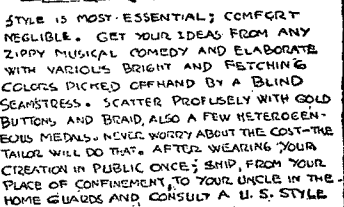 STYLE IS MOST ESSENTIAL; COMFORT
NEGLIBLE. GET YOUR IDEAS FROM ANY
ZIPPY MUSICAL COMEDY AND ELABORATE
WITH VARIOUS BRIGHT AND FETCHING
COLORS PICKED OFFHAND BY A BLIND
SEAMSTRESS. SCATTER PROFUSELY WITH GOLD
BUTTONS AND BRAID, ALSO A FEW HETEROGEN-
EOUS MEDALS. NEVER WORRY ABOUT THE COST-THE
TAILOR WILL DO THAT. AFTER WEARING YOUR
CREATION IN PUBLIC ONCE; SHIP, FROM YOUR
PLACE OF CONFINEMENT, TO YOUR UNCLE IN THE
HOME GUARDS AND CONSULT A U.S. STYLE